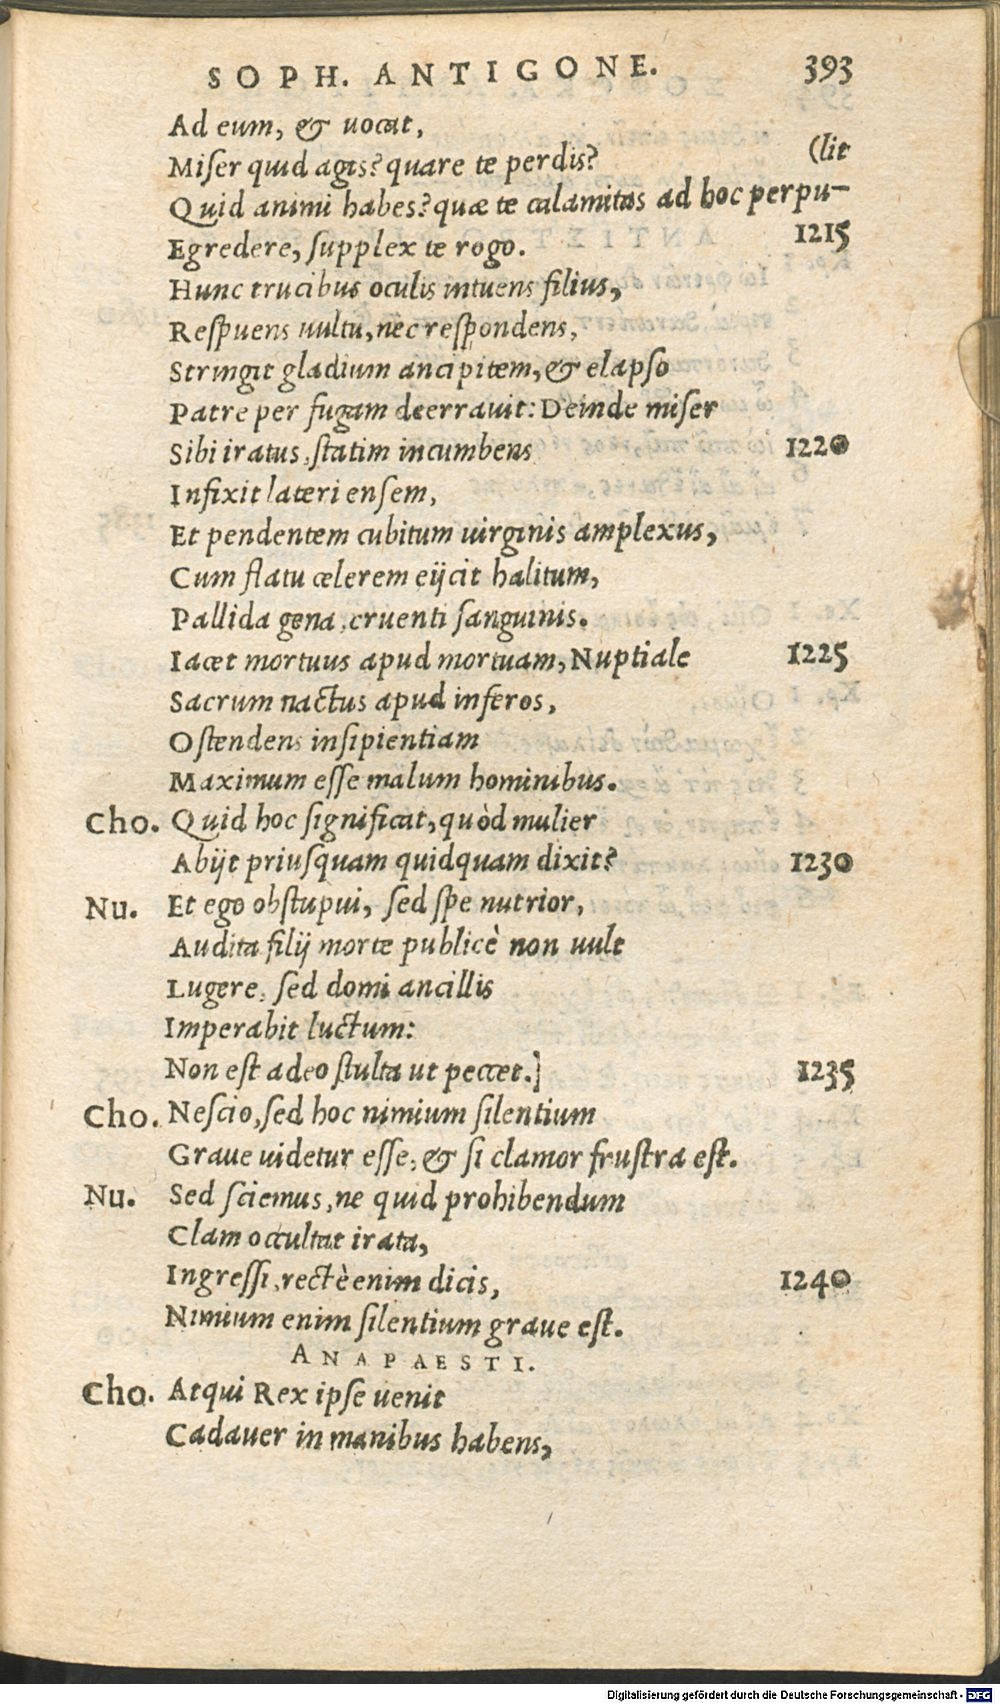 SOPH. ANTIGONE. 393
Ad eum, & uocat,
Miſer quid agis? quare te perdis? (lit
Quid animi habes? quæ te calamitas ad hoc perpu-
Egredere, ſupplex te rogo. 1215
Hunc trucibus oculis intuens filius,
Reſpuens uultu, nec reſpondens,
Stringit gladium ancipitem, & elapſo
Patre per fugam deerrauit: Deinde miſer
Sibi iratus, ſtatim incumbens 1220
Infixit lateri enſem,
Et pendentem cubitum uirginis amplexus,
Cum flatu celerem eijcit halitum,
Pallida gena, cruenti ſanguinis.
Iacet mortuus apud mortuam, Nuptiale 1225
Sacrum nactus apud inferos,
Oſtendens inſipientiam
Maximum eſſe malum hominibus.
Cho. Quid hoc ſignificat, quòd mulier
Abijt priuſquam quidquam dixit? 1230
Nu. Et ego obſtupui, ſed ſpe nutrior,
Audita filij morte publicè non uult
Lugere, ſed domi ancillis
Imperabit luctum:
Non eſt adeo ſtulta ut peccet.] 1235
Cho. Neſcio, ſed hoc nimium ſilentium
Graue uidetur eſſe, & ſi clamor fruſtra eſt.
Nu. Sed ſciemus, ne quid prohibendum
Clam occultat irata,
Ingreſſi, rectè enim dicis, 1240
Nimium enim ſilentium graue eſt.
ANAPAESTI.
Cho. Atqui Rex ipſe uenit
Cadauer in manibus habens,
Digitalisierung gefördert durch die Deutsche Forschungsgemeinschaft - DFG